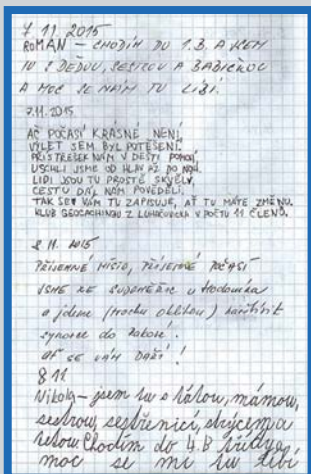 7.11.2015
ROMAN – CHODÍM DO 1.B A JSEM
TU S DĚDOU, SESTROU A BABIČKOU
A MOC SE NÁM TU LÍBÍ.
7.11.2015
AČ POČASÍ KRÁSNÉ NENÍ,
VÝLET SEM BYL POTĚŠENÍ.
PŘÍSTŘEŠEK NÁM V DEŠTI POMOH,
USCHLI JSME OD HLAV AŽ DO NOH.
LIDI JSOU TU PROSTĚ SKVĚLÝ,
CESTU DÁL NÁM POVĚDĚLI.
TAK SE VÁM TU ZAPISUJE, AŤ TU MÁTE ZMĚNU.
KLUB GEOCACHINGU Z LUHAČOVICKA V POČTU 11 ČLENŮ.
8.11. 2015
PŘÍJEMNÉ MÍSTO, PŘÍJEMNÉ POČASÍ
JSME ZE SUDOMĚŘIC u Hodonína
a jdeme (trochu oklikou) navštívit
synovce do
AŤ SE VÁM DAŘÍ!
8.11.
Nikola – jsem tu s tátou, mámou,
sestrou, sestřenicí, strýcem a
tetou. Chodím do 4.B třídy a
moc se mi tu líbí